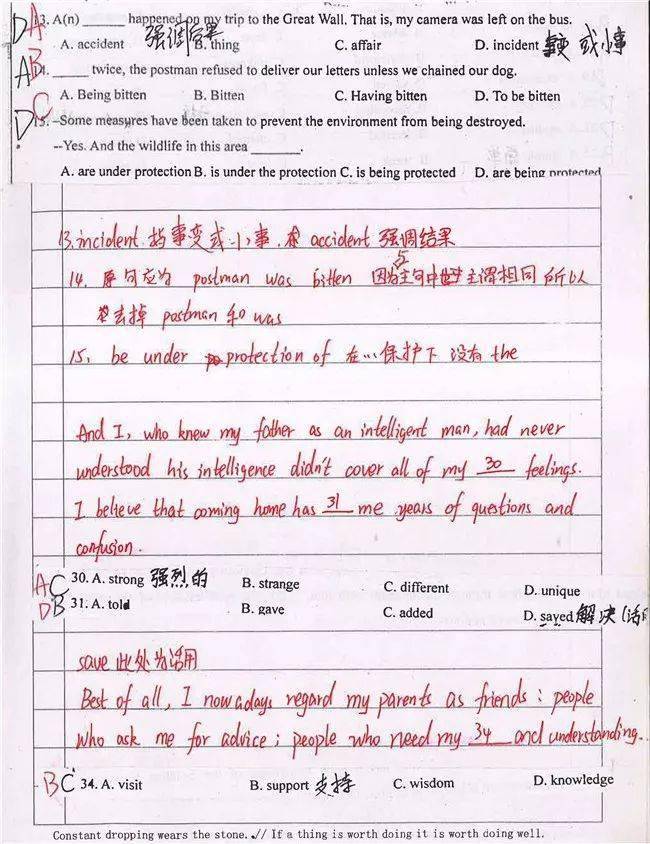 DA 13. A(n) ______ happened on my trip to the Great Wall. That is, my camera was left on the bus.
A. accident 强调后果 B. thing C. affair D. incident 事变 或小事
AB 14. _____ twice, the postman refused to deliver our letters unless we chained our dog.
A. Being bitten B. Bitten C. Having bitten D. To be bitten
DC 15. –Some measures have been taken to prevent the environment from being destroyed.
--Yes. And the wildlife in this area ________.
A. are under protection B. is under the protection C. is being protected D. are being protected
13. incident 指事变或小事. accident 强调结果
14. 原句应为 postman was bitten 因为与主句中主谓相同 所以
去掉 postman 和 was
15. be under protection of 在…保护下 没有 the
And I, who knew my father as an intelligent man, had never
understood his intelligence didn't cover all of my 30 feelings.
I believe that coming home has 31 me years of questions and
confusion.
AC 30. A. strong 强烈的 B. strange C. different D. unique
DB 31. A. told B. gave C. added D. saved 解决 (活
save 此处为活用
Best of all, I nowadays regard my parents as friends : people
who ask me for advice ; people who need my 34 and understanding.
BC 34. A. visit B. support 支持 C. wisdom D. knowledge
Constant dropping wears the stone. // If a thing is worth doing it is worth doing well.